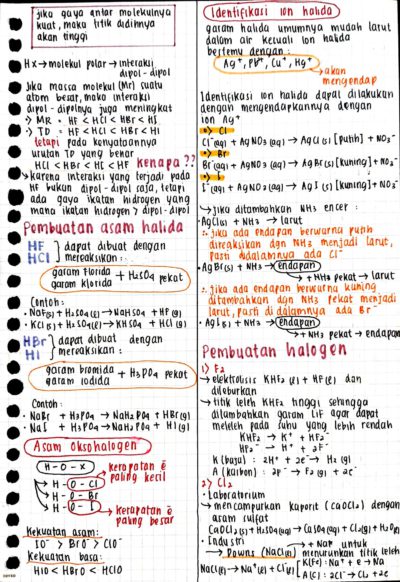 jika gaya antar molekulnya
kuat, maka titik didihnya
akan tinggi
Hx → molekul polar → interaksi
dipol-dipol
Jika massa molekul (Mr) suatu
atom besar, maka interaksi
dipol-dipolnya juga meningkat
:> MR = HF < HCl < HBr < HI
:> TD = HF < HCl < HBr < HI
tetapi pada kenyataannya
urutan TD yang benar
HCl < HBr < HI < HF kenapa ??
↳ karena interaksi yang terjadi pada
HF bukan dipol-dipol saja, tetapi
ada gaya ikatan hidrogen yang
mana ikatan hidrogen > dipol-dipol
Pembuatan asam halida
HF
HCl } dapat dibuat dengan
mereaksikan:
garam florida
garam klorida + H2SO4 pekat
Contoh:
• NaF(s) + H2SO4(l) → NaHSO4 + HF (g)
• KCl(s) + H2SO4(l) → KHSO4 + HCl (g)
HBr
HI } dapat dibuat dengan
mereaksikan:
garam bromida
garam iodida + H3PO4 pekat
Contoh:
• NaBr + H3PO4 → NaH2PO4 + HBr(g)
• NaI + H3PO4 → NaH2PO4 + HI(g)
Asam oksohalogen
H-O-X
H-O-Cl → kerapatan ē
paling kecil
H-O-Br
H-O-I → kerapatan ē
paling besar
Kekuatan asam:
IO⁻ > BrO⁻ > ClO⁻
Kekuatan basa:
HIO < HBrO < HClO
Identifikasi ion halida
garam halida umumnya mudah larut
dalam air kecuali ion halida
bertemu dengan:
Ag⁺, Pb⁺, Cu⁺, Hg⁺
→ akan
mengendap
Identifikasi ion halida dapat dilakukan
dengan mengendapkannya dengan
ion Ag⁺
Cl
Cl⁻(aq) + AgNO3 (aq) → AgCl (s) [putih] + NO3⁻
Br
Br⁻(aq) + AgNO3 (aq) → AgBr (s) [kuning] + NO3⁻
I
I⁻(aq) + AgNO3 (aq) → AgI (s) [kuning] + NO3⁻
↳ jika ditambahkan NH3 encer:
• AgCl(s) + NH3 → larut
∴ jika ada endapan berwarna putih
direaksikan dgn NH3 menjadi larut,
pasti didalamnya ada Cl⁻
• AgBr(s) + NH3 → endapan
→ + NH3 pekat → larut
∴ jika ada endapan berwarna kuning
ditambahkan dgn NH3 pekat menjadi
larut, pasti di dalamnya ada Br⁻
• AgI(s) + NH3 → endapan
→ + NH3 pekat → endapan
Pembuatan halogen
1) F2
↳ elektrolisis KHF2 (l) + HF (l) dan
dileburkan
↳ titik leleh KHF2 tinggi sehingga
ditambahkan garam LiF agar dapat
meleleh pada suhu yang lebih rendah
KHF2 → K⁺ + HF2⁻
HF2⁻ → H⁺ + 2F⁻
K (baja) : 2H⁺ + 2e⁻ → H2 (g)
A (karbon) : 2F⁻ → F2 (g) + 2e⁻
2) Cl2
• Laboratorium
↳ mencampurkan kaporit (CaOCl2) dengan
asam sulfat
CaOCl2(s) + H2SO4(aq) → CaSO4 (aq) + Cl2(g) + H2O(l)
• Industri
→ Downs (NaCl(l)) → untuk
menurunkan titik leleh
NaCl(l) → Na⁺(l) + Cl⁻(l)
K(Fe) : Na⁺ + e → Na
A(C) : 2Cl⁻ → Cl2 + 2e